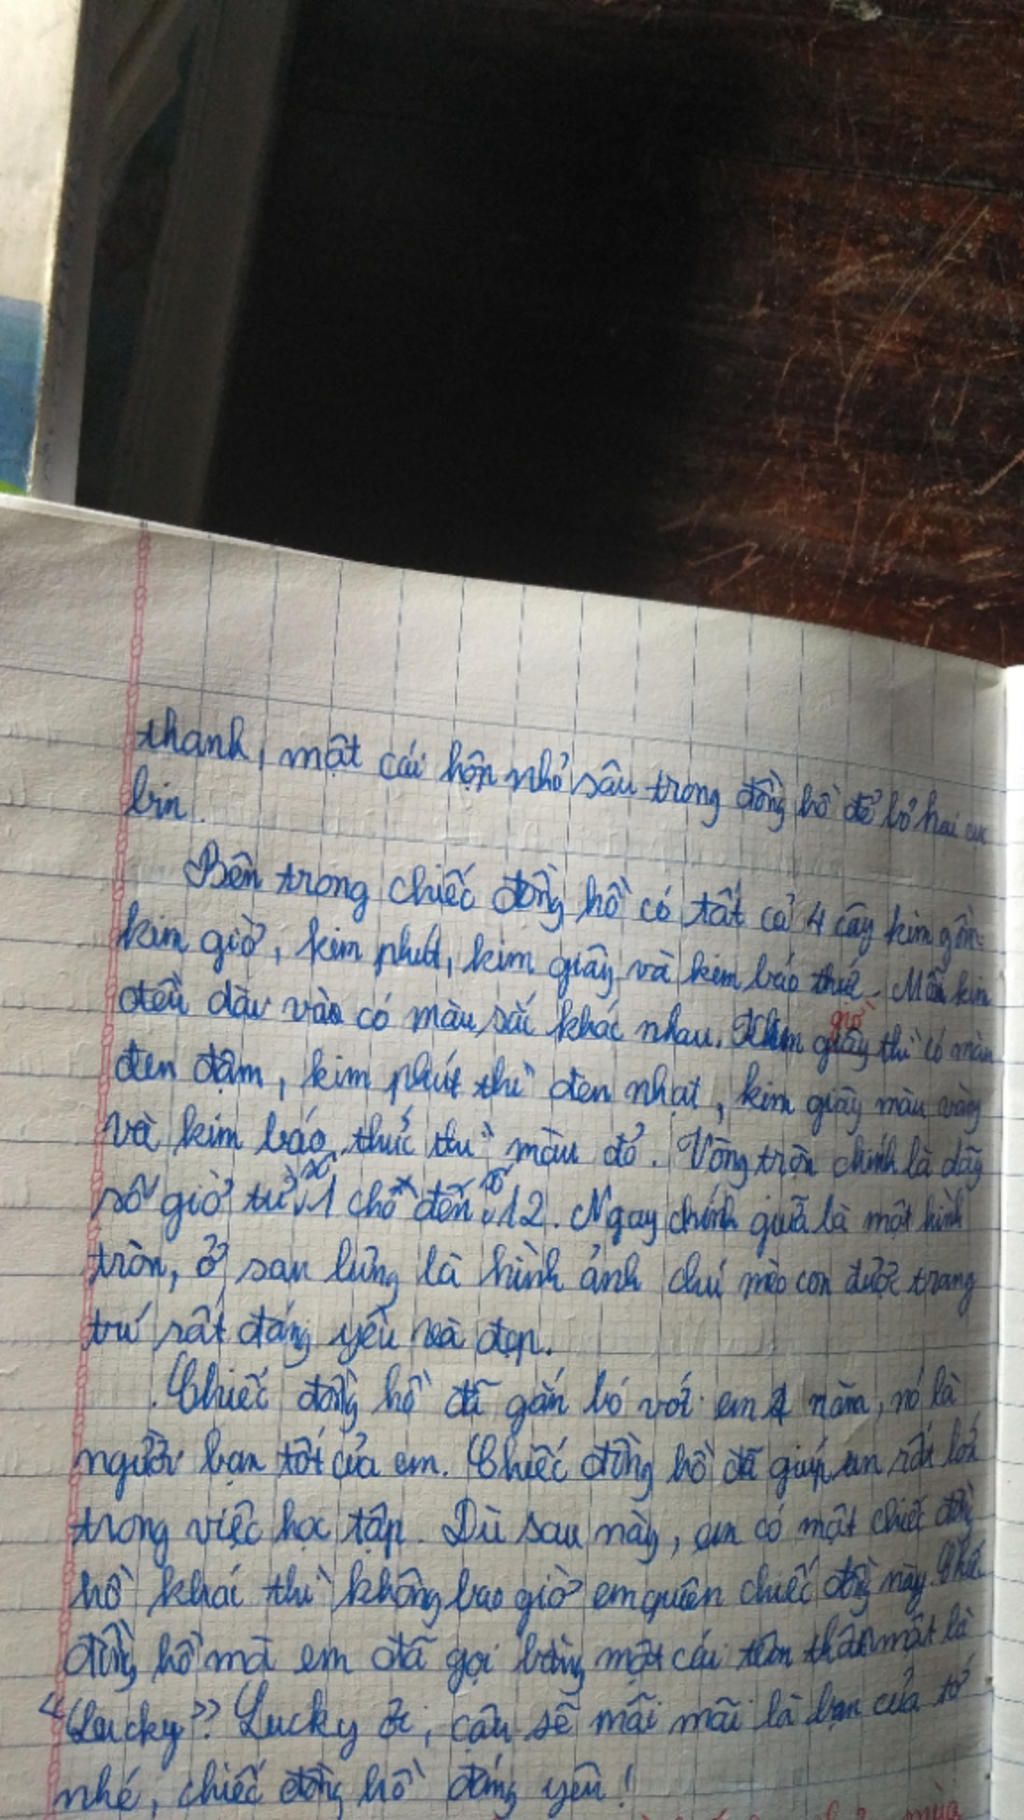 thanh, một cái hộp nhỏ sâu trong đồng hồ để bỏ hai cục
bin.
Bên trong chiếc đồng hồ có tất cả 4 cây kim gồm
kim giờ, kim phút, kim giây và kim báo thức. Mỗi kim
đều dài và có màu sắc khác nhau. Kim giây thì có màu
giờ
đen đậm, kim phút thì đen nhạt, kim giây màu vàng
và kim báo thức thì màu đỏ. Vòng tròn chính là dãy
số giờ từ số 1 cho đến số 12. Ngay chính giữa là một hình
tròn, ở sau lưng là hình ảnh chú mèo con được trang
trí rất đáng yêu và đẹp.
Chiếc đồng hồ đã gắn bó với em năm, nó là
người bạn tốt của em. Chiếc đồng hồ đã giúp em rất
trong việc học tập. Dù sau này, em có một chiếc đồng
hồ khác thì không bao giờ em quên chiếc đồng này. Chiếc
đồng hồ mà em đã gọi bằng một cái tên thân mật là
"Lucky" Lucky ơi, cậu sẽ mãi mãi là bạn của tớ
nhé, chiếc đồng hồ đáng yêu!